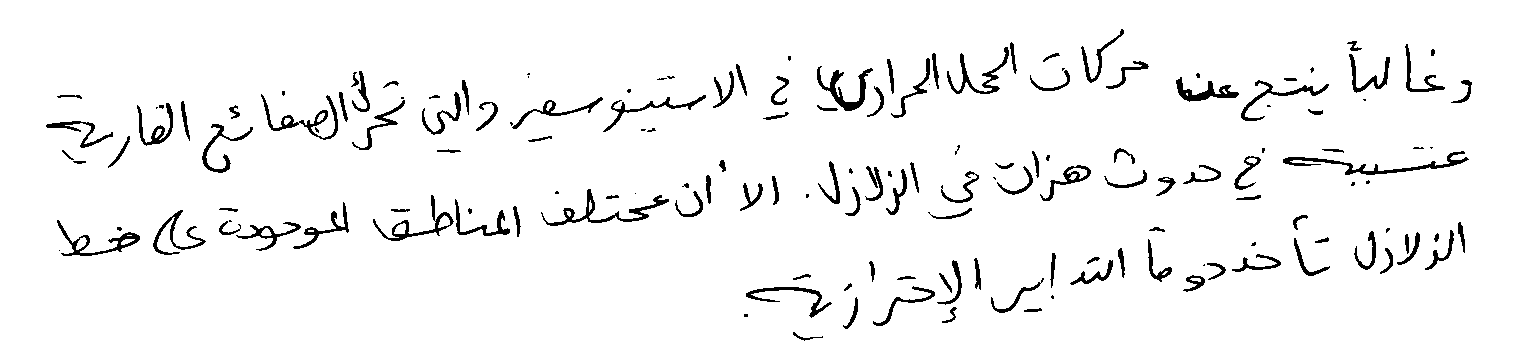 وغالباً ينتج عن حركات الحمل الحراري في الاستينوسفير والتي تحرك الصفائح القارية
متسببة في حدوث هزات في الزلازل. الا أن مختلف المناطق الموجودة على خط
الزلازل تأخذ دوماً التدابير الإحترازية.